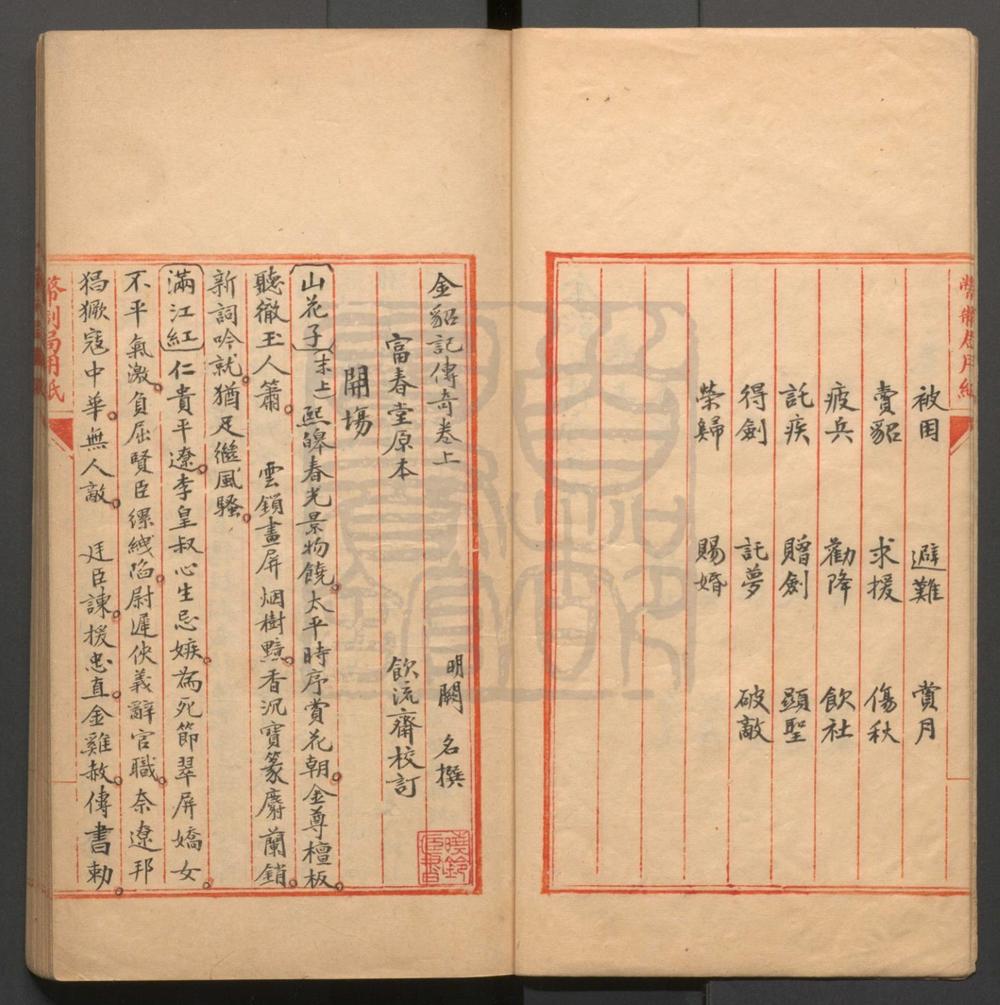 被困 避難 賞月
賣貂 求援 傷秋
疲兵 勸降 飲社
託疾 贈劍 顕聖
得劍 託夢 破敵
榮歸 賜婚
金貂記傳奇卷上 明闕 名撰
富春堂原本 飲流齋校訂
開場
山花子 末上 熙皞春光景物饒。太平時序賞花朝。金尊檀板。
聽徹玉人簫。 雲鎖畫屏烟樹黯。香沉寶篆麝蘭銷。
新詞吟就。猶足繼風騷。
滿江紅 仁貴平遼。李皇叔心生忌嫉。為死節翠屏嬌女。
不平氣激。負屈賢臣縲絏陷。尉遲俠義辭官職。奈遼邦
猖獗寇中華。無人敵。 廷臣諫。援忠直。金雞赦。傳書勅。
幣制局用紙
曉鈴
藏書